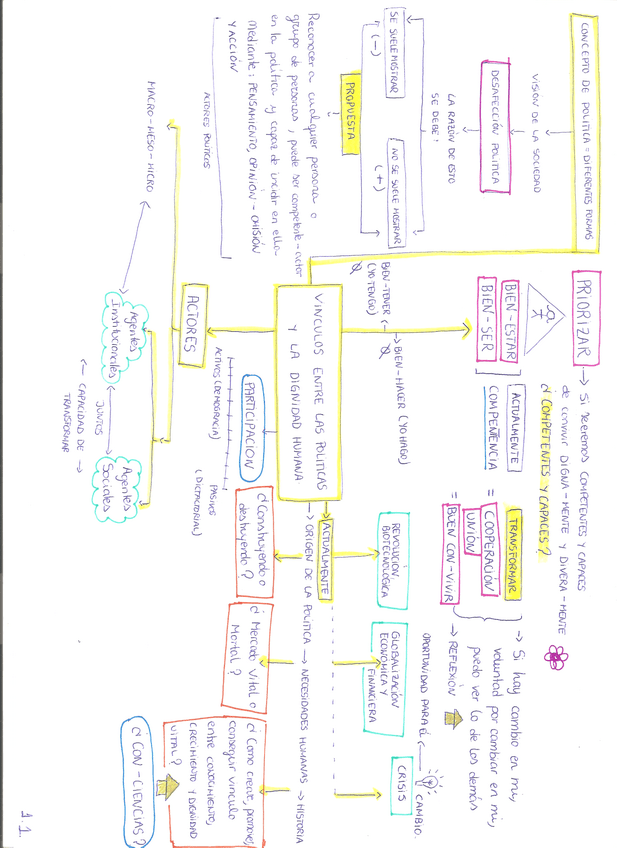 CONCEPTO DE POLITICA = DIFERENTES FORMAS
VISIÓN DE LA SOCIEDAD
DESAFECCIÓN POLITICA
LA RAZÓN DE ESTO
SE DEBE:
SE SUELE MOSTRAR
(-)
NO SE SUELE MOSTRAR
(+)
PROPUESTA
Reconocer a cualquier persona o
grupo de personas, puede ser competente-actor
en la politica y capaz de incidir en ella
mediante: PENSAMIENTO, OPINIÓN - OMISIÓN
Y ACCIÓN
PRIORIZAR
Si seremos COMPETENTES Y CAPACES
de convivir DIGNA-MENTE Y DIVERA-MENTE
¿COMPETENTES Y CAPACES?
BIEN-ESTAR
BIEN-SER
ACTUALMENTE
COMPETENCIA
TRANSFORMAR
= COOPERACIÓN
UNIÓN
= BUEN CON-VIVIR
Si hay cambio en mi,
voluntad por cambiar en mi,
puedo ver lo de los demás
REFLEXIÓN
OPORTUNIDAD PARA EL
CAMBIO.
BIEN-TENER
(YO TENGO)
BIEN-HACER (YO HAGO)
VINCULOS ENTRE LAS POLITICAS
Y LA DIGNIDAD HUMANA
ACTUALMENTE
REVOLUCIÓN
BIOTECNOLOGICA
GLOBALIZACIÓN
ECONOMICA Y
FINANCIERA
CRISIS
ORIGEN DE LA POLITICA → NECESIDADES HUMANAS → HISTORIA
¿Construyendo o
destruyendo?
¿Mercado Vital o
Mortal?
¿Como crear, promover,
conseguir vinculo
entre CONOCIMIENTO,
CRECIMIENTO Y DIGNIDAD
VITAL?
¿CON-CIENCIAS?
PARTICIPACION
ACTIVOS (DEMOCRACIA)
PASIVOS
(DICTATORIAL)
ACTORES
ACTORES POLITICOS
MACRO-MESO-MICRO
Agentes
Institucionales
JUNTOS
Agentes
Sociales
← CAPACIDAD DE →
TRANSFORMAR
1.1.